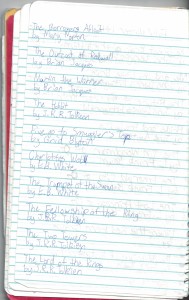 The Borrowers Afloat
by Mary Norton
The Outcast of Redwall
by Brian Jacques
Martin the Warrior
by Brian Jacques
The Hobbit
by J.R.R. Tolkien
Five go to Smuggler's Top
by Enid Blyton
Charlotte's Web
by E.B. White
The Trumpet of the Swan
by E.B. White
The Fellowship of the Ring
by J.R.R. Tolkien
The Two Towers
by J.R.R. Tolkien
The Lord of the Rings
by J.R.R. Tolkien